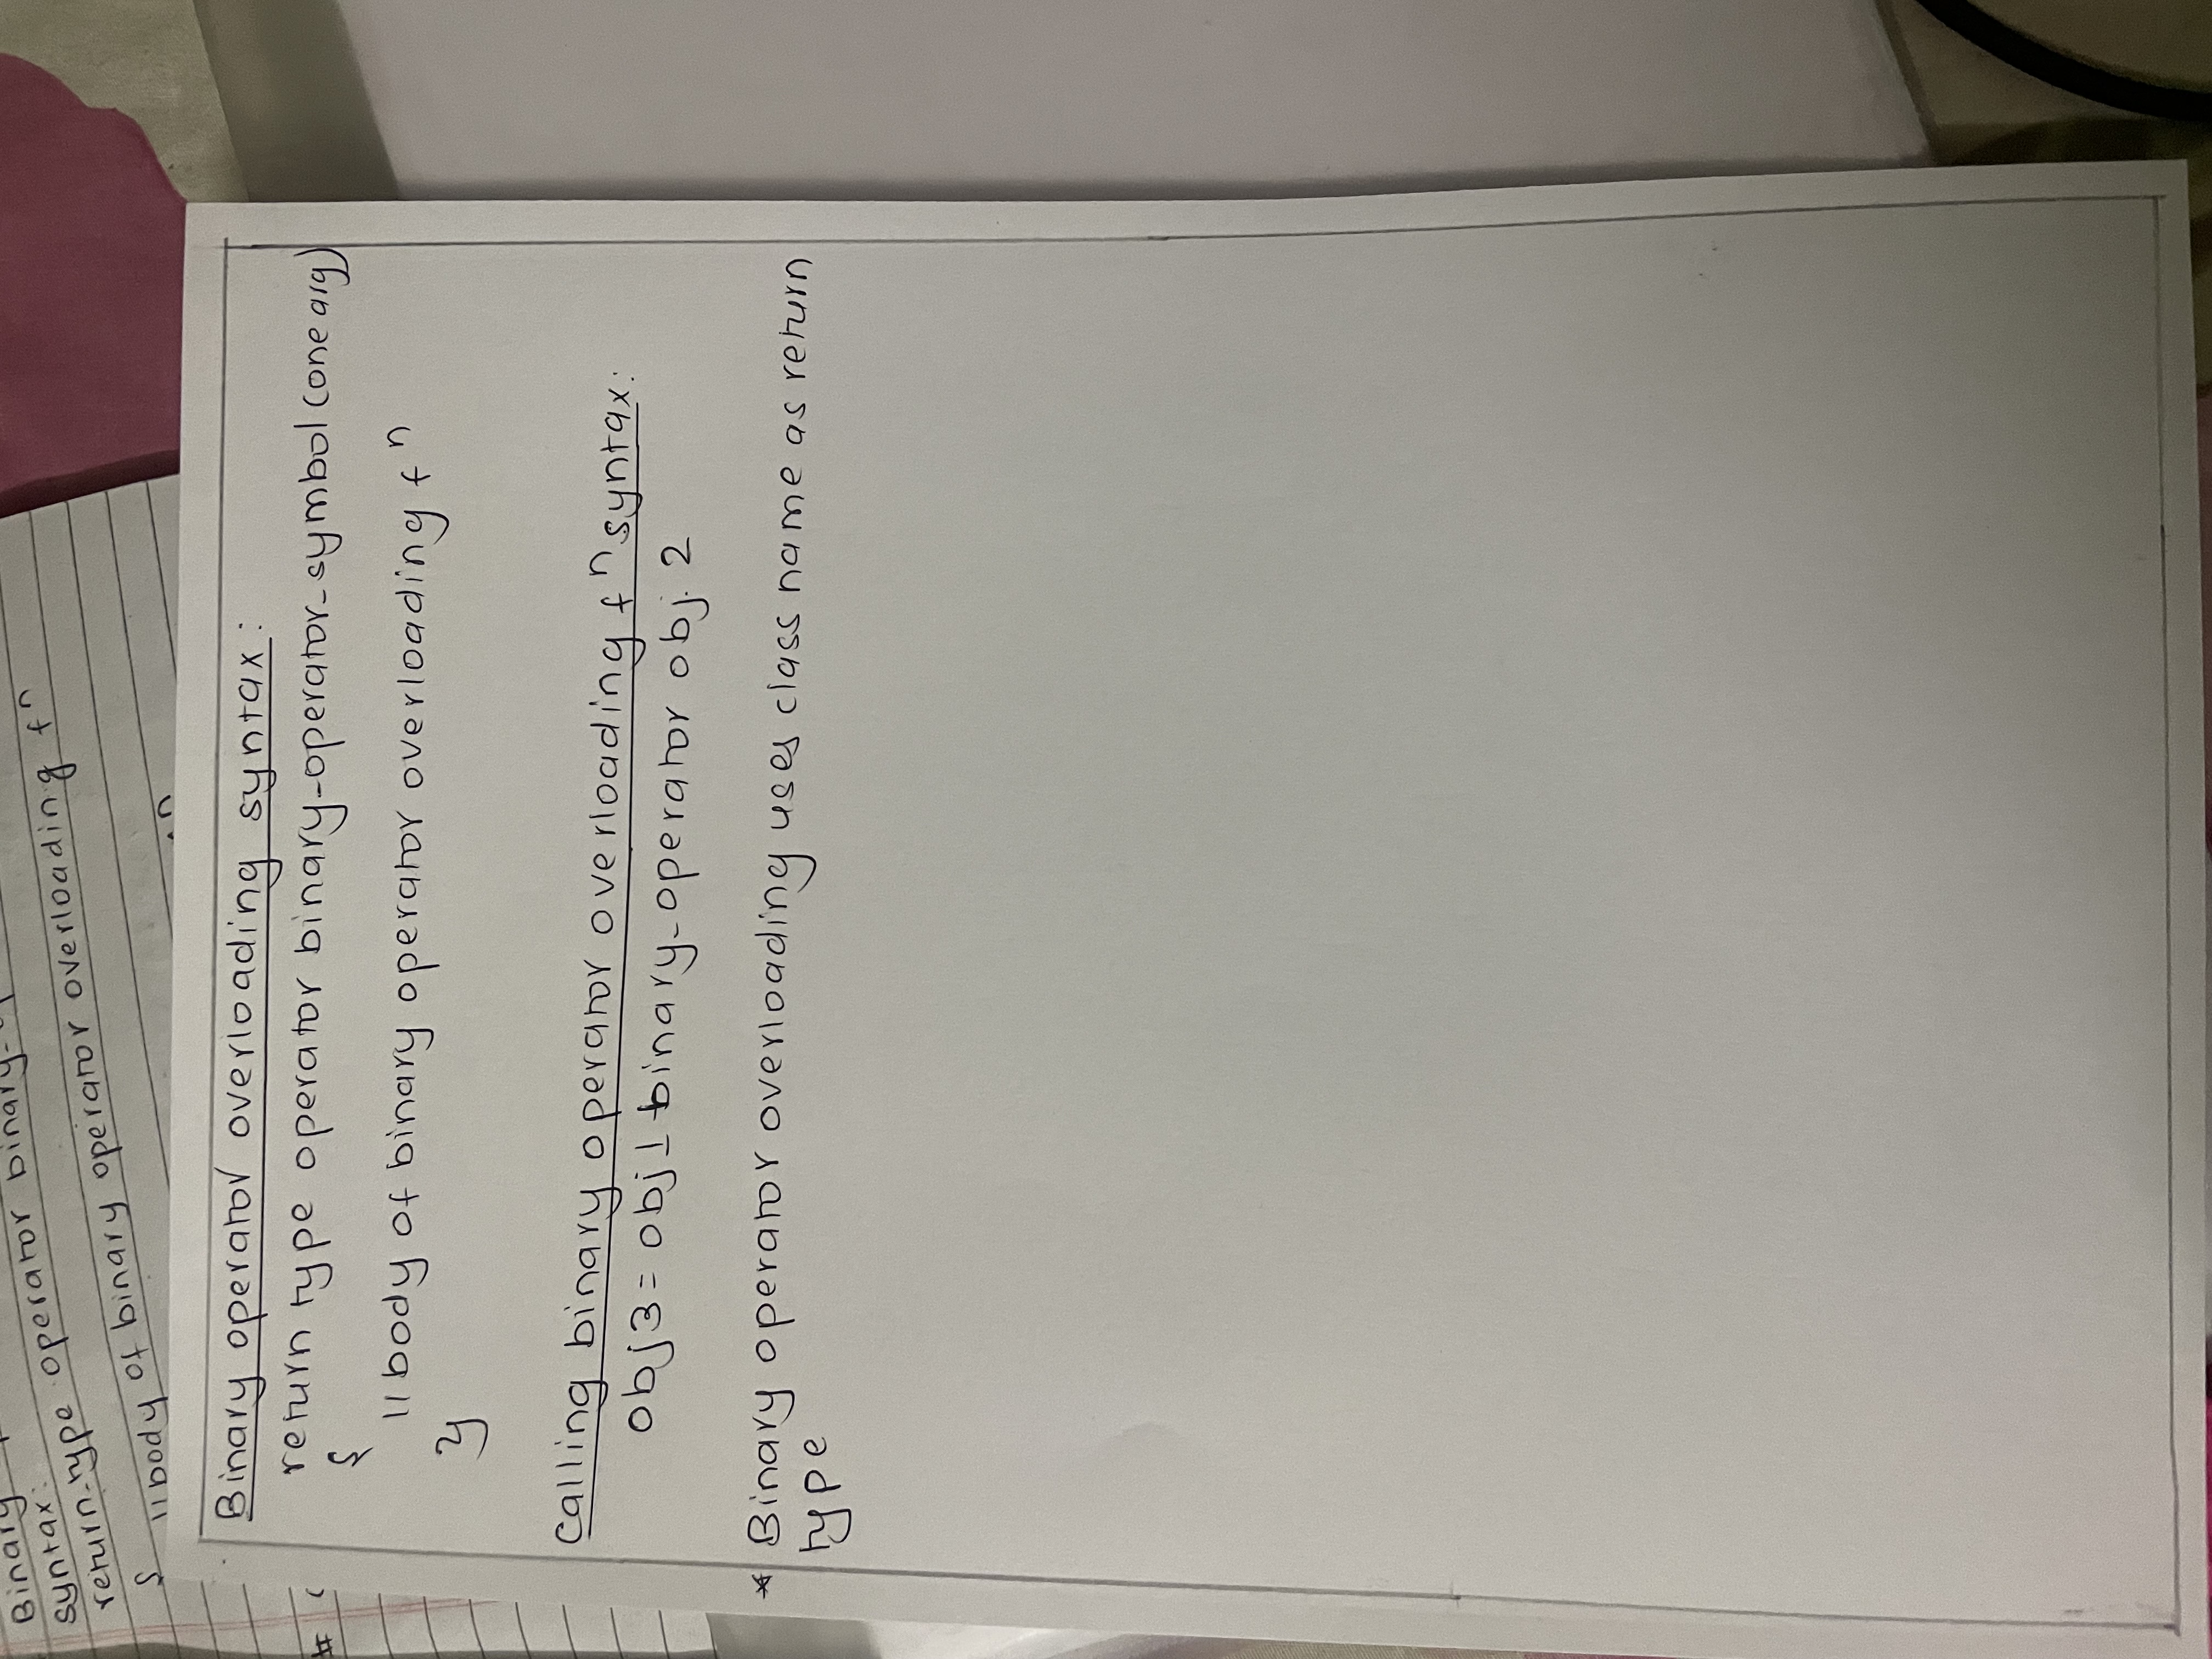 Binary
syntax:
return-type operator binary-
{
//body of binary operator overloading fⁿ
n
#
Binary operator overloading syntax:
return type operator binary-operator-symbol (one arg)
{
//body of binary operator overloading fⁿ
}
Calling binary operator overloading fⁿ syntax:
obj3 = obj1 binary-operator obj.2
* Binary operator overloading uses class name as return
type